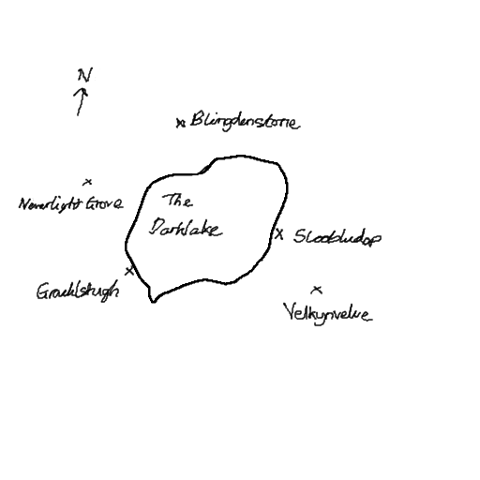 N
Blingdenstone
Neverlight Grove
The
Darklake
Sloobludop
Gracklstugh
Velkynvelve